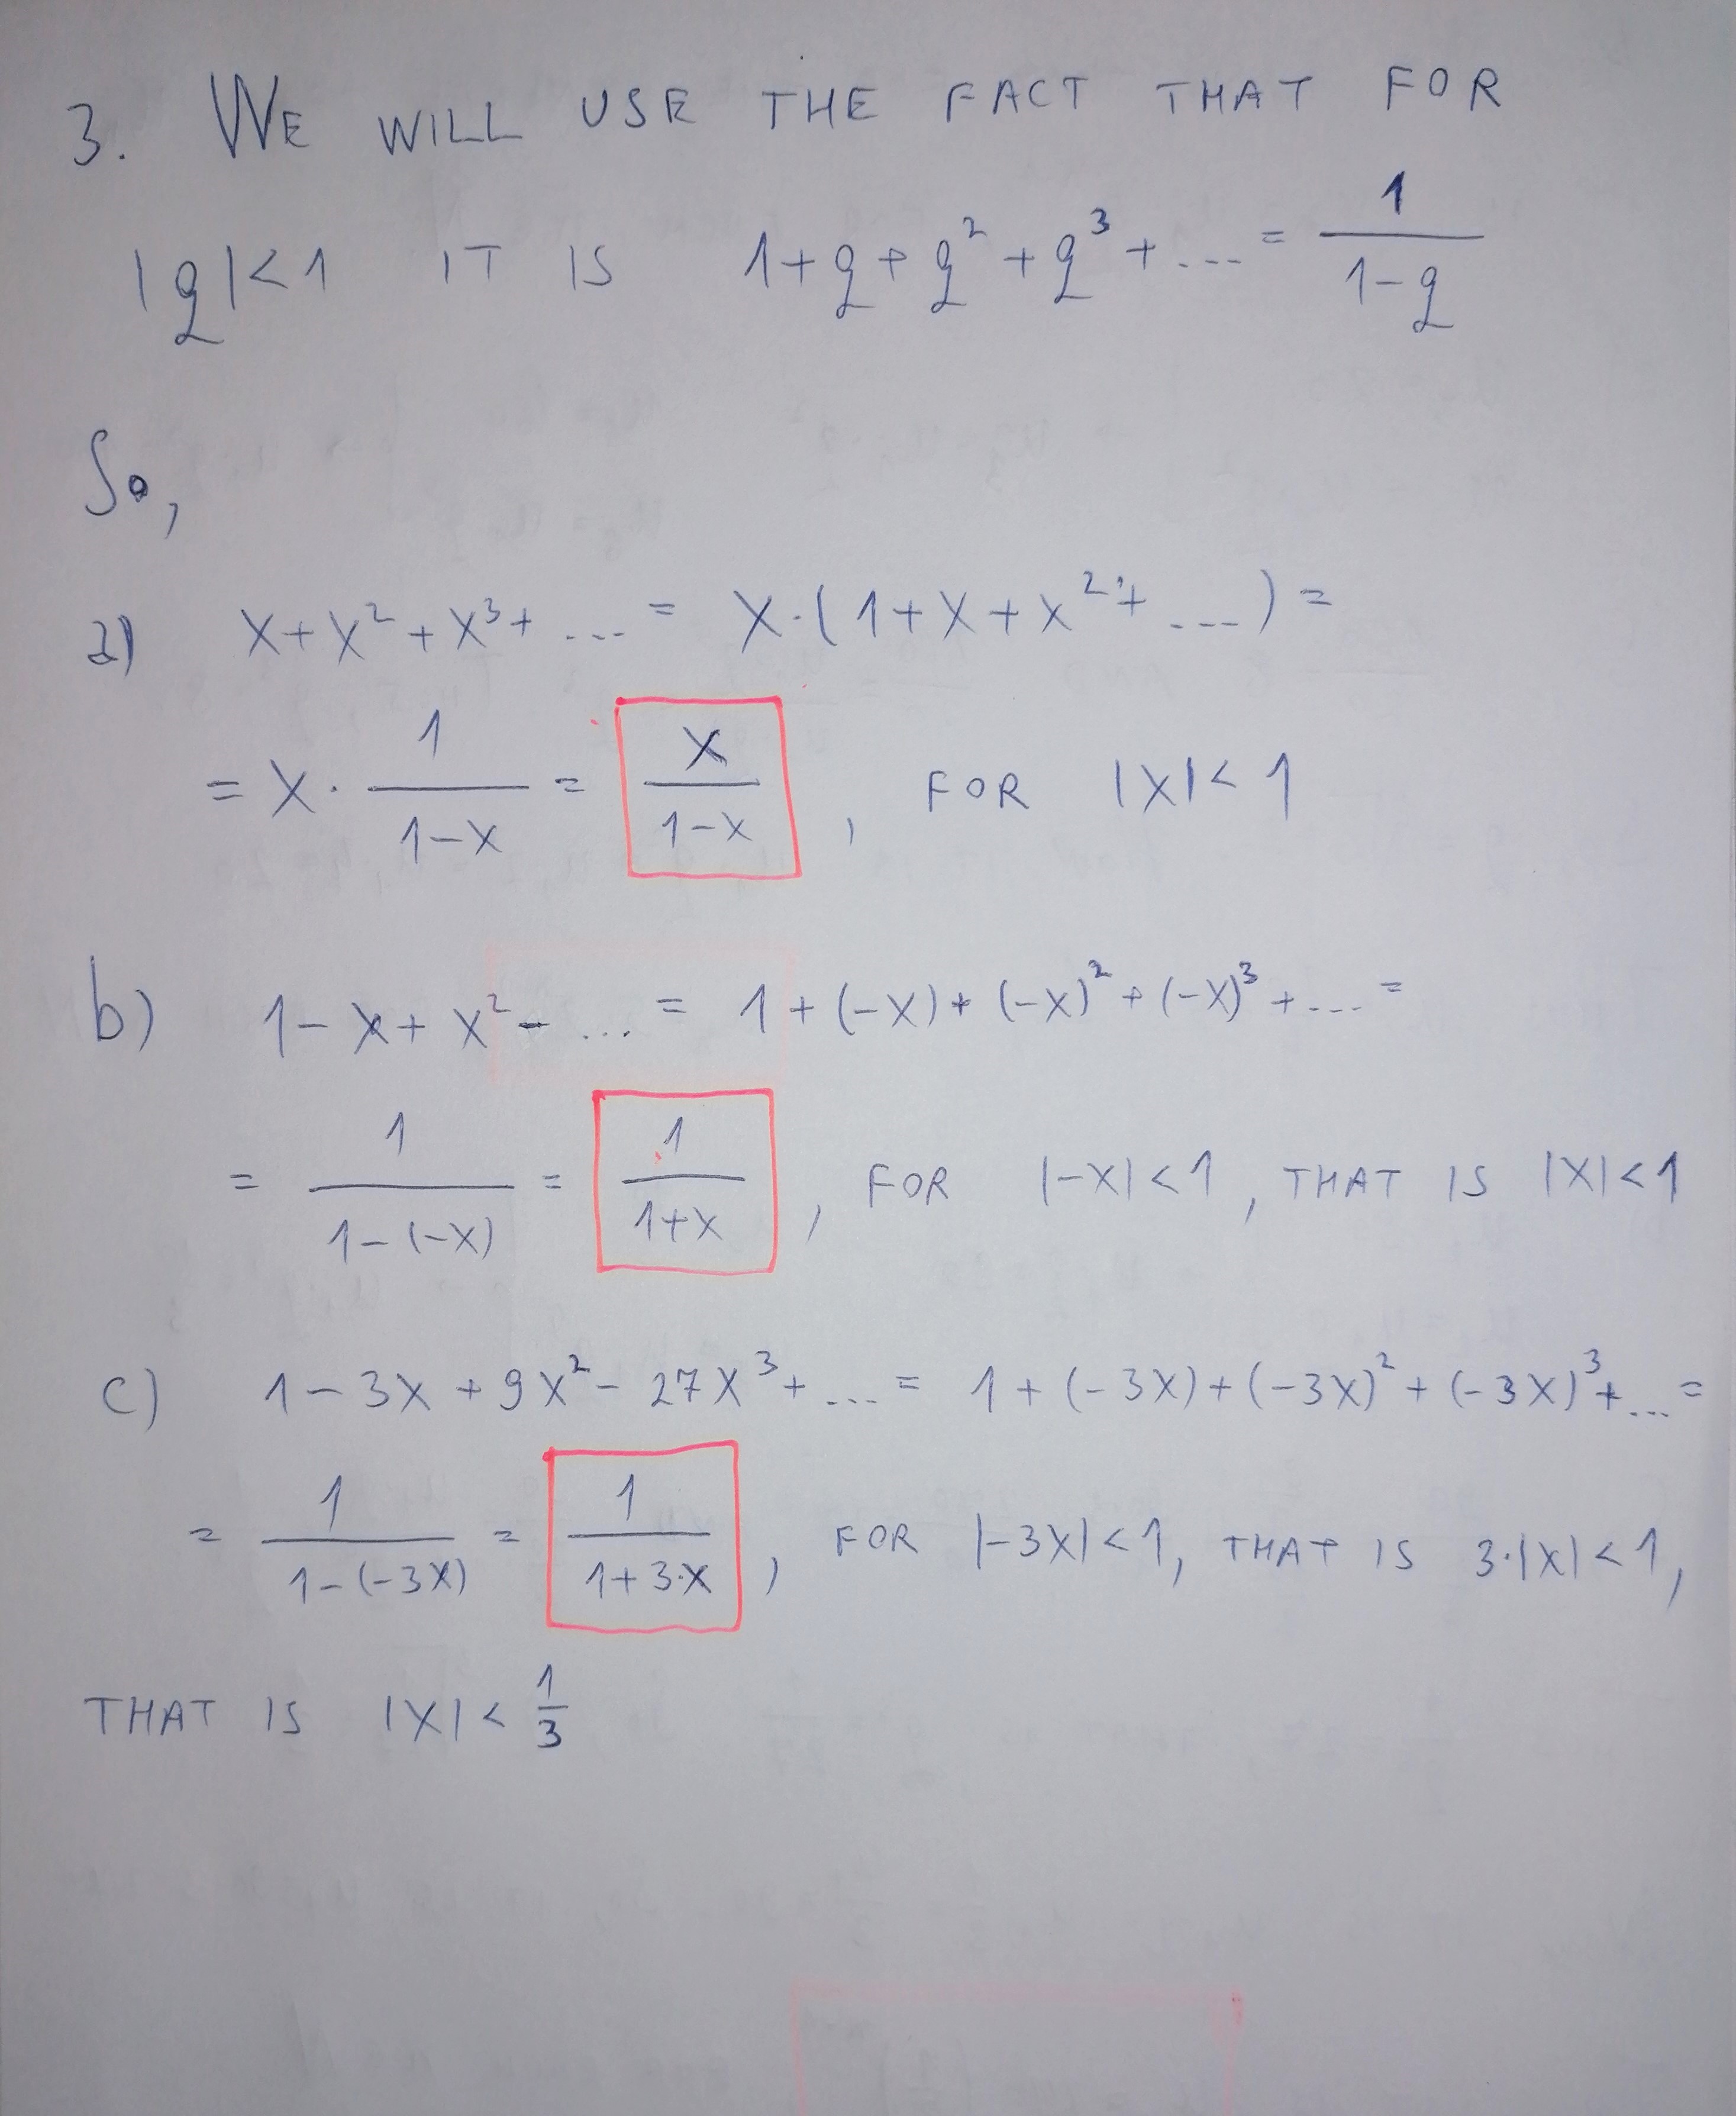 3. WE WILL USE THE FACT THAT FOR
|q|<1 IT IS 1+q+q²+q³+... = 1/(1-q)
So,
a) x+x²+x³+... = x·(1+x+x²+...) =
= x · 1/(1-x) = x/(1-x) , FOR |x|<1
b) 1-x+x²-... = 1+(-x)+(-x)²+(-x)³+... =
= 1/(1-(-x)) = 1/(1+x) , FOR |-x|<1, THAT IS |x|<1
c) 1-3x+9x²-27x³+... = 1+(-3x)+(-3x)²+(-3x)³+... =
= 1/(1-(-3x)) = 1/(1+3·x) , FOR |-3x|<1, THAT IS 3·|x|<1,
THAT IS |x|< 1/3